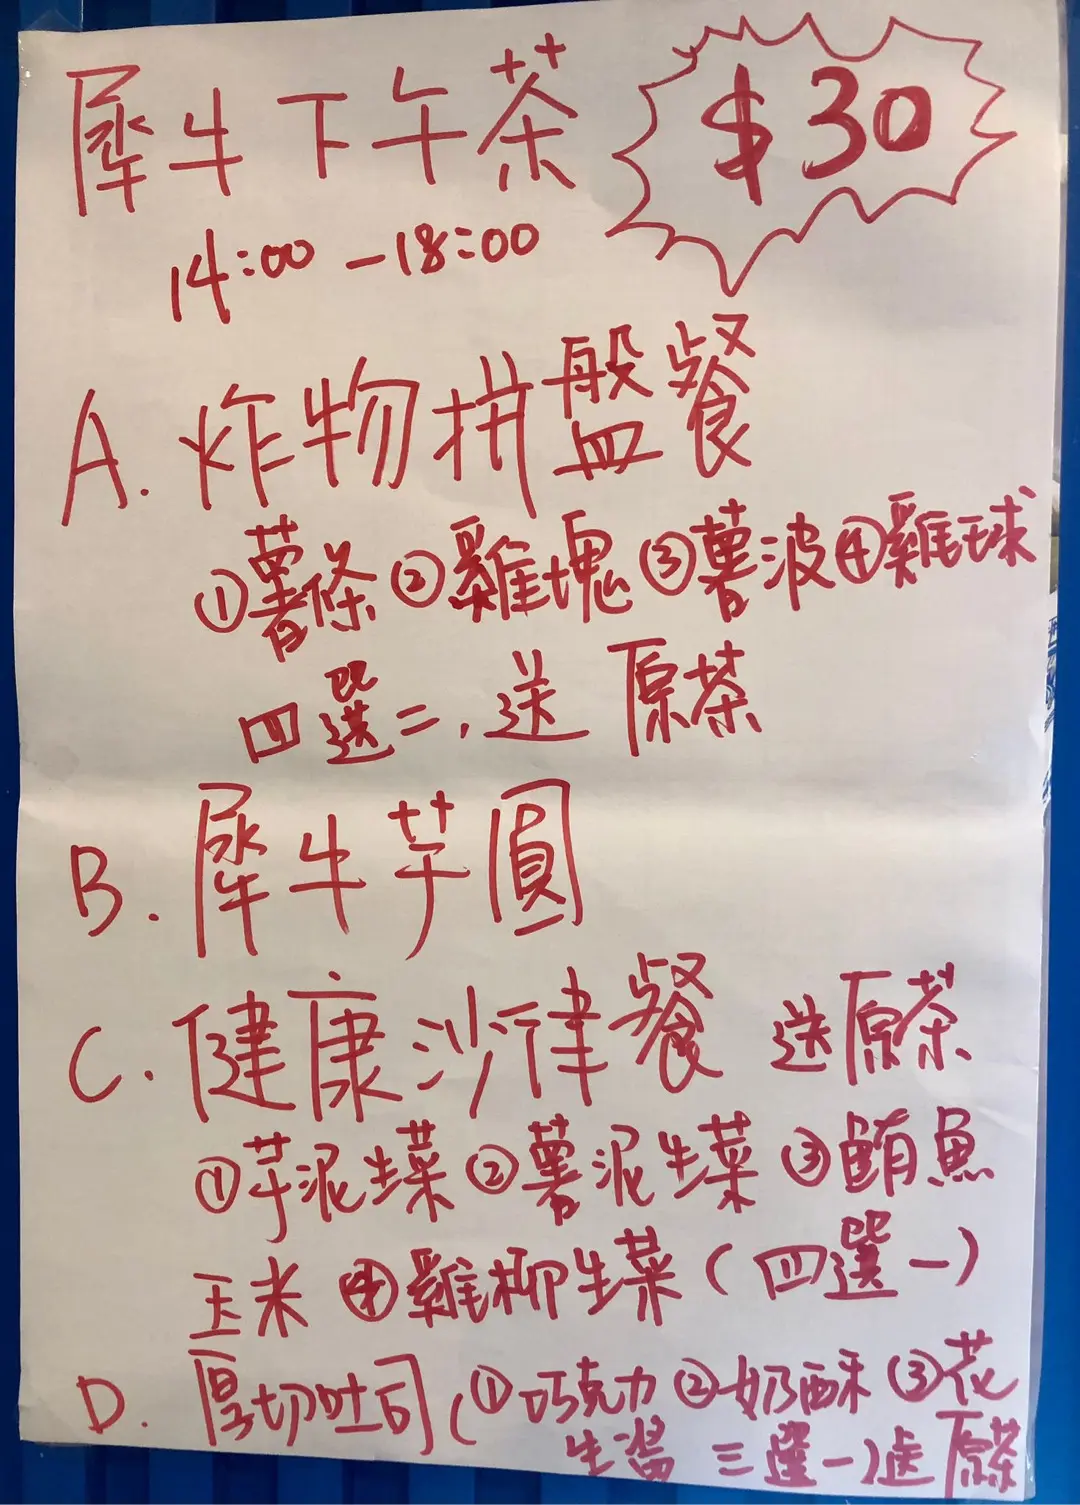 犀牛下午茶
$30
14:00-18:00
A. 炸物拼盤餐
①薯條②雞塊③薯波④雞球
四選二,送原茶
B. 犀牛芋圓
C. 健康沙律餐 送原茶
①芋泥生菜②薯泥生菜③鮪魚
玉米④雞柳生菜(四選一)
D. 厚切吐司(①巧克力②奶酥③花
生醬 三選一)送原茶